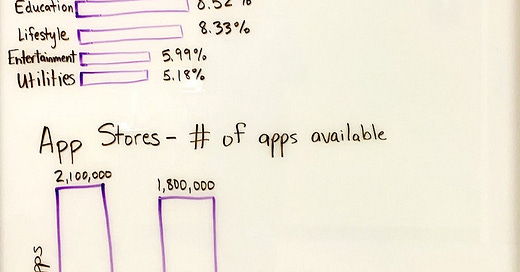 Education
Lifestyle 8.33%
Entertainment 5.99%
Utilities 5.18%
App Stores - # of apps available
2,100,000 1,800,000